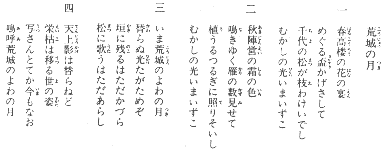 荒城の月
一
春高楼の花の宴
めぐる盃かげさして
千代の松が枝わけいでし
むかしの光いまいずこ
二
秋陣営の霜の色
鳴きゆく雁の数見せて
植うるつるぎに照りそいし
むかしの光いまいずこ
三
いま荒城のよわの月
替らぬ光たがためぞ
垣に残るはただかづら
松に歌うはただあらし
四
天上影は替らねど
栄枯は移る世の姿
写さんとてか今もなお
嗚呼荒城のよわの月